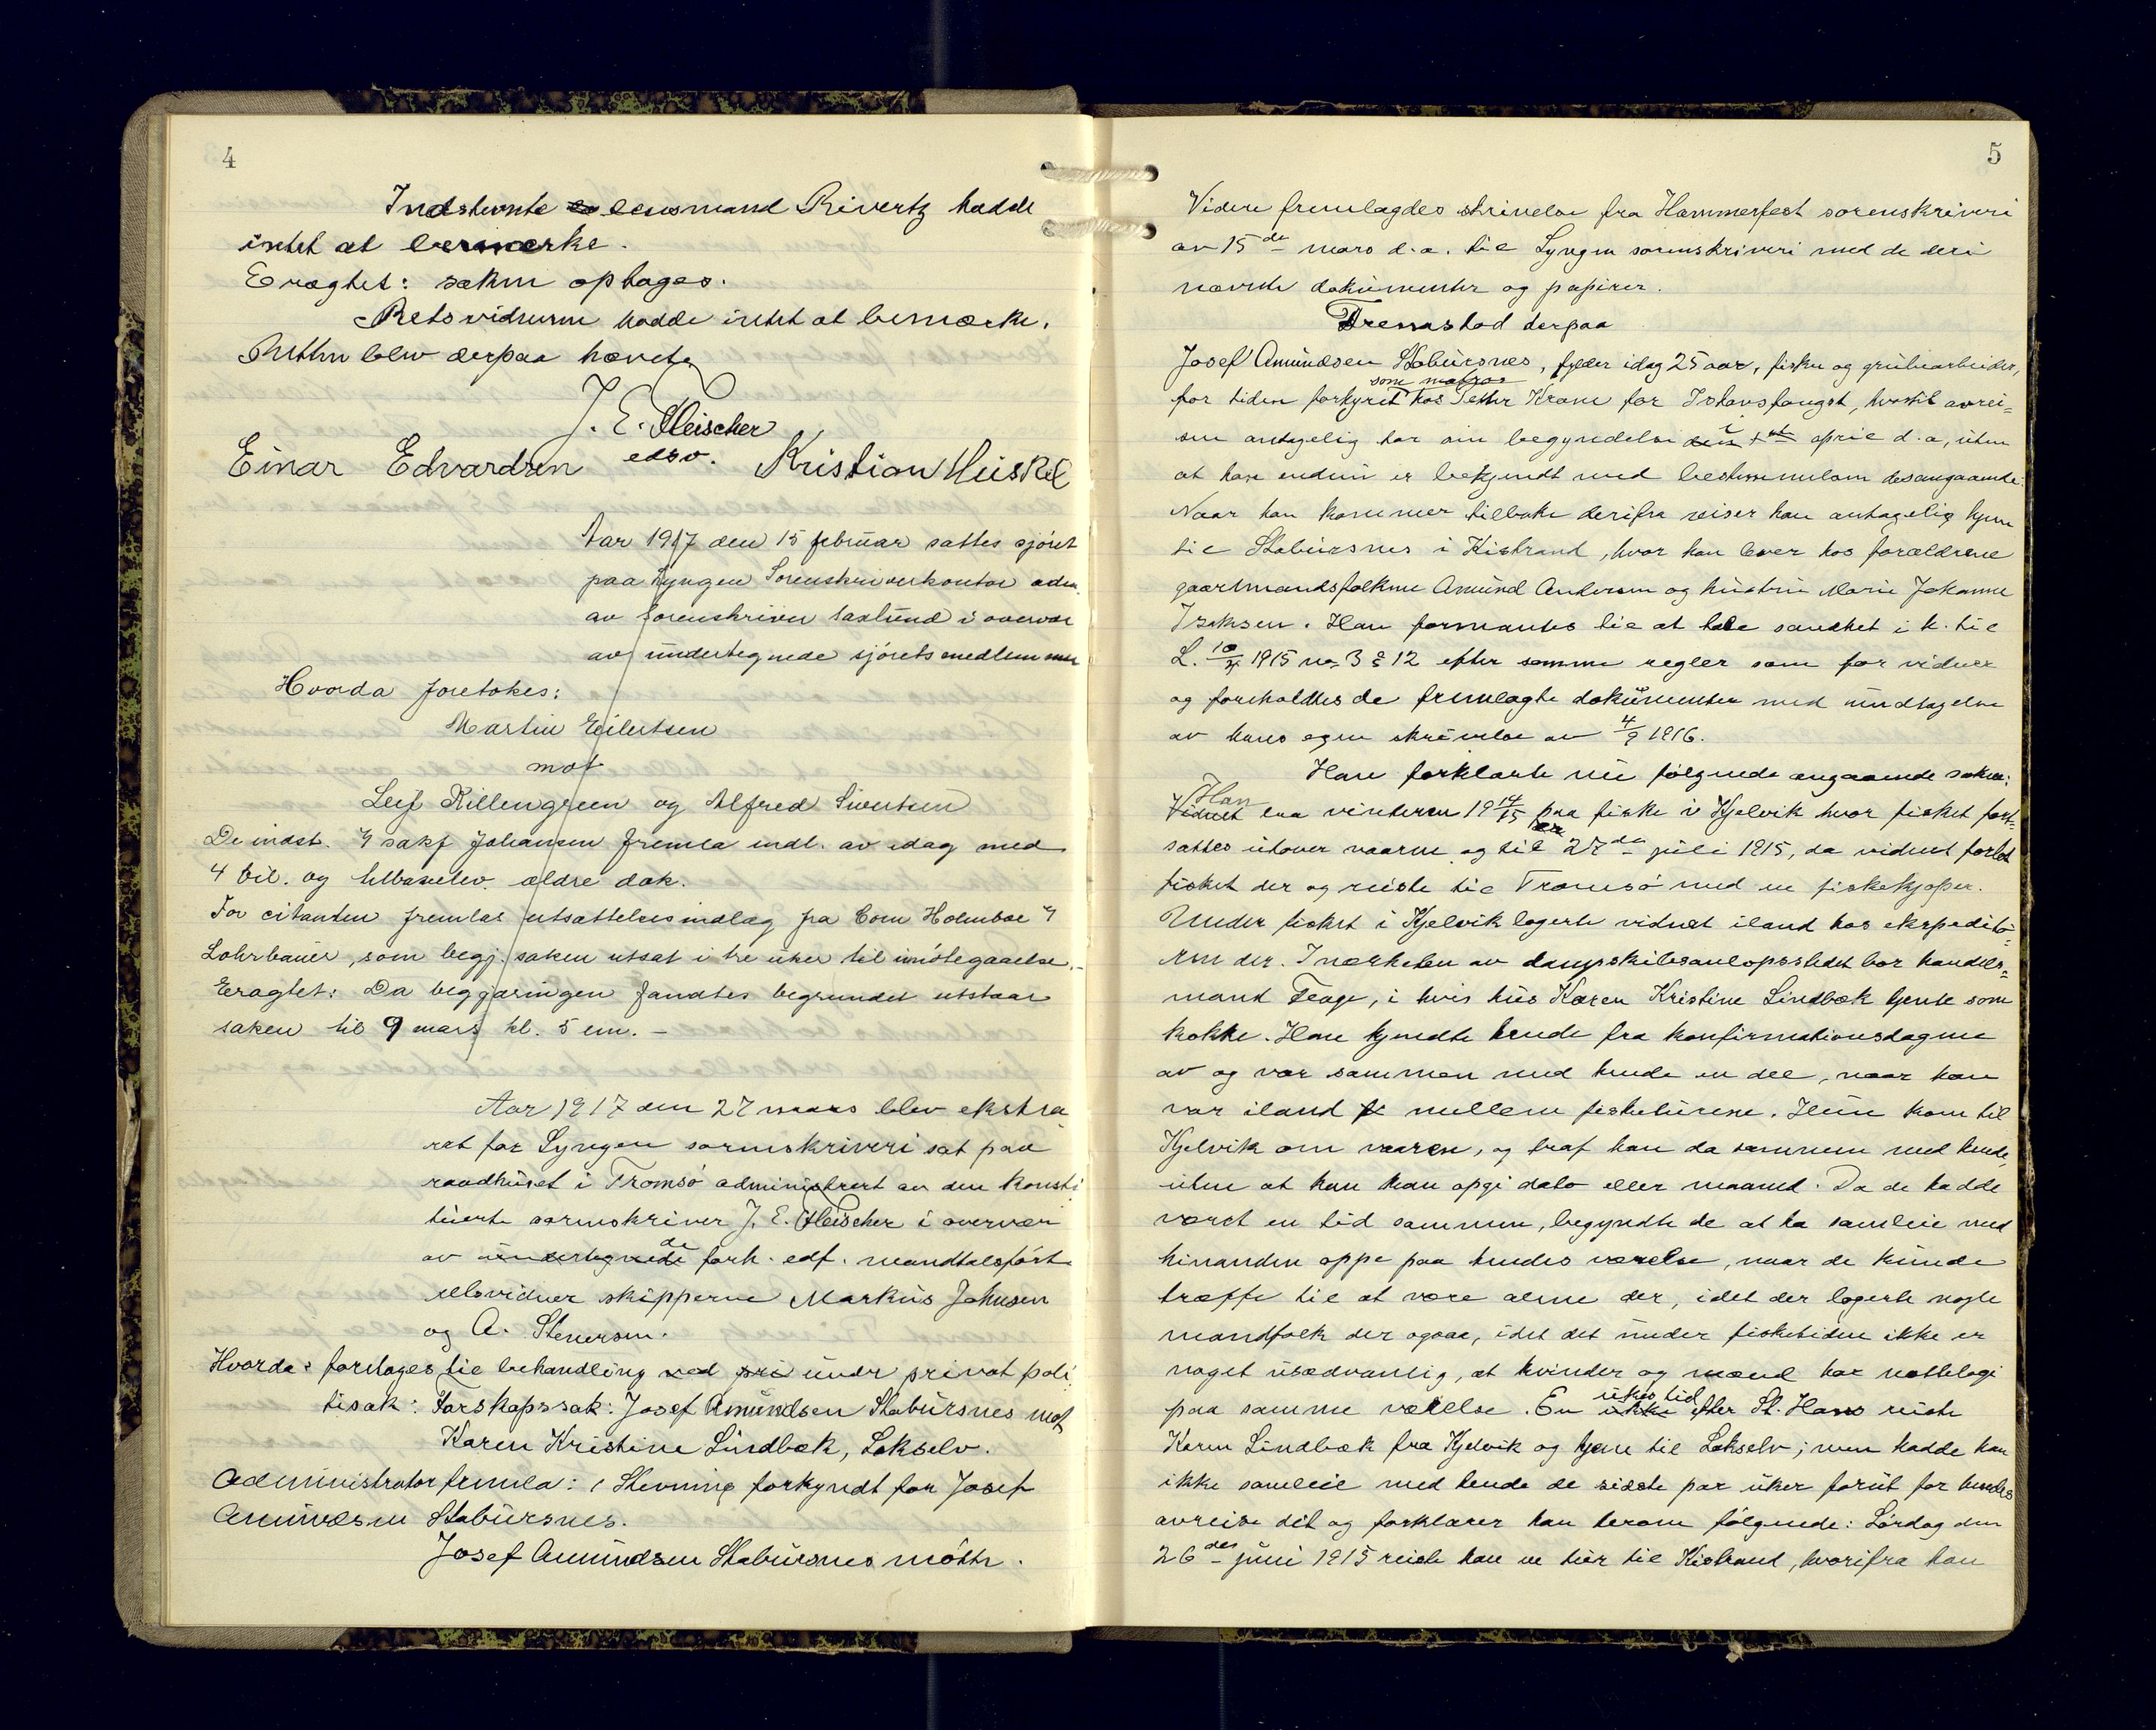 4
Indstevnte lensmand Rivertz hadde
intet at bemerke.
Eragtet: saken optages.
Retsvidnerne hadde intet at bemærke.
Retten blev derpaa hævet.
J. E. Fleischer
edsv.
Einar Edvardsen Kristian Huskel
Aar 1917 den 15 februar sattes sjöret
paa Lyngen Sorenskriverkontor adm.
av sorenskriver Saxlund i overvær
av undertegnede sjöretsmedlemmer
Hvorda foretokes:
Martin Eilertsen
mot
Leif Killengreen og Alfred Sivertsen
De indst. v/ sakf Johansen fremla indl. av idag med
4 bil. og tilbakelev. ældre dok.
For citanten fremlas utsættelsesindlæg fra Com Holmboe &
Lohrbauer, som begj. saken utsat i tre uker til imötegaaelse.-
Eragtet: Da begjæringen fandtes begrundet utstaar
saken til 9 mars kl. 5 em. -
Aar 1917 den 27 mars blev ekstra
ret for Lyngen sorenskriveri sat paa
raadhuset i Tromsö administrert av den konsti
tuerte sorenskriver J. E. Fleischer i overvær
av undertegnede de fork. edf. mandtalsført
retsvidner skipperne Markus Johnsen
og A. Stenersen.
Hvorda: foretages til behandling ved pri under privat poli
tisak: Farskapssak: Josef Amundsen Stabursnes mot
Karen Kristine Lindbæk, Lakselv.
Administrator fremla: 1 Stevning forkyndt for Josef
Amundsen Stabursnes.
Josef Amundsen Stabursnes mötte.
5
Videre fremlagdes skrivelse fra Hammerfest sorenskriveri
av 15de mars d.a. til Lyngen sorenskriveri med de deri
nævnte dokumenter og papirer.
Fremstod derpaa
Josef Amundsen Stabursnes, fylder idag 25 aar, fisker og grubearbeider,
som matros
for tiden forhyret hos Petter Krane for Ishavsfangst, hvortil avrei=
sen antagelig tar sin begyndelse i april d.a, uten
at han endnu er bekjendt med bestemmelsen desangaaende.
Naar han kommer tilbake derifra reiser han antagelig hjem
til Stabursnes i Kistrand, hvor han lever hos forældrene
gaardmandsfolkene Amund Andersen og hustru Marie Johanne
Isaksen. Han formantes til at tale sandhet i h. til
L. 10/4 1915 no 3 § 12 efter samme regler som for vidner
og foreholdtes de fremlagte dokumenter med undtagelse
av hans egen skrivelse av 4/9 1916.
Han forklarte nu følgende angaaende saken:
Han
Vidnet laa vinteren 1914/15 paa fiske i Kjelvik hvor fisket fort=
sattes utover vaaren og til 27de juli 1915, da vidnet forlot
fisket der og reiste til Tromsö med en fiskekjøper.
Under fisket i Kjelvik logerte vidnet iland hos ekspeditö=
ren der. I nærheten av dampskibsanlöpsstedet bor handels=
mand Feage, i hvis hus Karen Kristine Lindbæk tjente som
kokke. Han kjendte hende fra konfirmationsdagene
av og var sammen med hende en del, naar han
var iland mellem fisketurene. Hun kom til
Kjelvik om vaaren, og traf han da sammen med hende,
uten at han kan opgi dato eller maaned. Da de hadde
været en tid sammen, begyndte de at ha samleie med
hinanden oppe paa hendes værelse, naar de kunde
træffe til at være alene der, idet der logerte nogle
mandfolk der ogsaa, idet det under fisketiden ikke er
noget usædvanlig, at kvinder og mænd har nattelogi
paa samme værelse. En ukes tid efter St. Hans reiste
Karen Lindbæk fra Kjelvik og hjem til Lakselv; men hadde han
ikke samleie med hende de sidste par uker forut for hendes
avreise dit og forklarer han herom følgende: Lördag den
26des juni 1915 reiste han en tur til Kistrand, hvorifra han